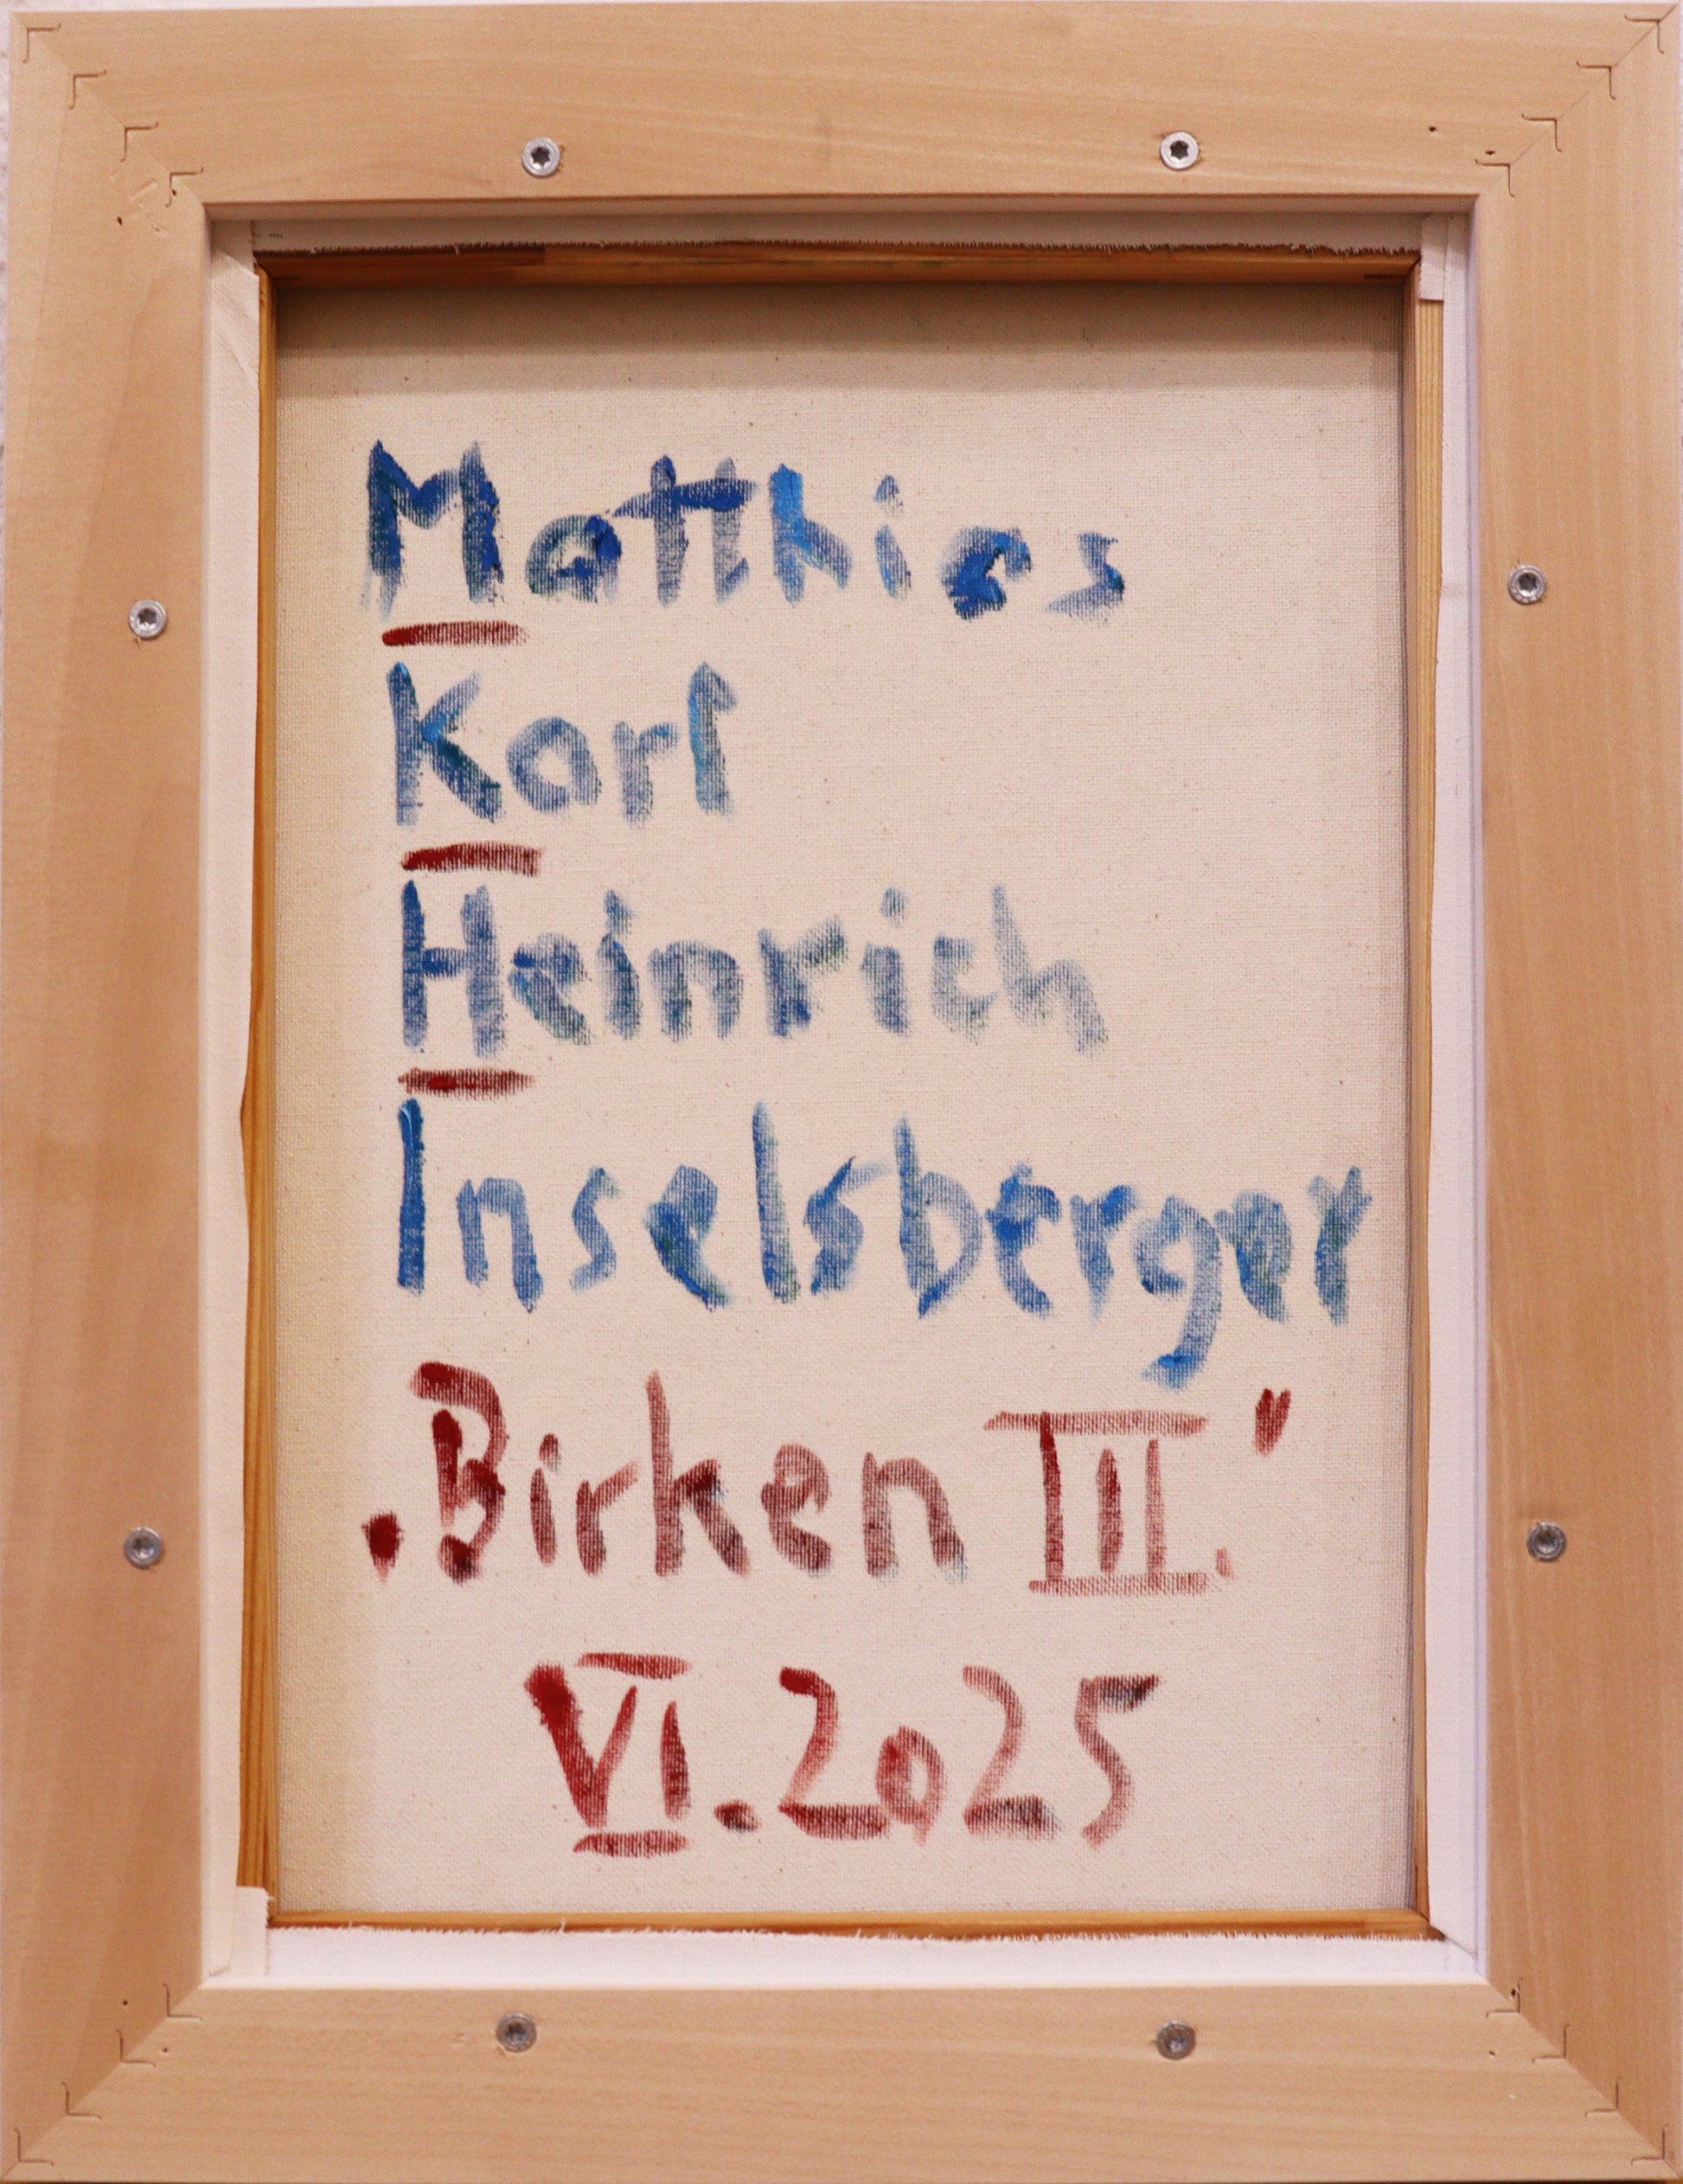 Matthias
Karl
Heinrich
Inselsberger
„Birken III."
VI.2025